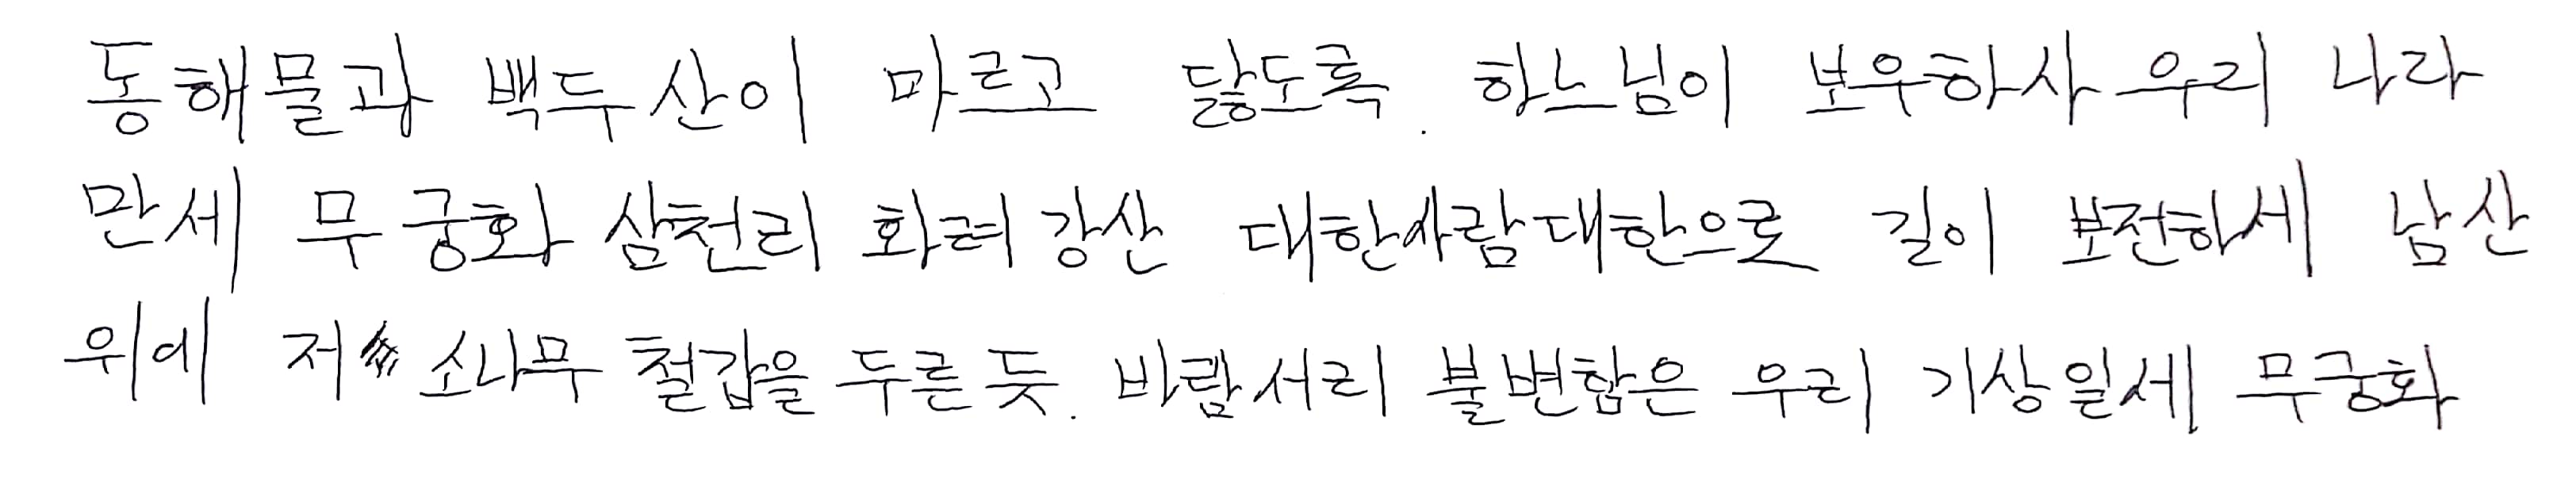 동해물과 백두산이 마르고 닳도록. 하느님이 보우하사 우리 나라
만세 무궁화 삼천리 화려강산 대한사람 대한으로 길이 보전하세 남산
위에 저 소나무 철갑을 두른 듯. 바람서리 불변함은 우리 기상일세 무궁화